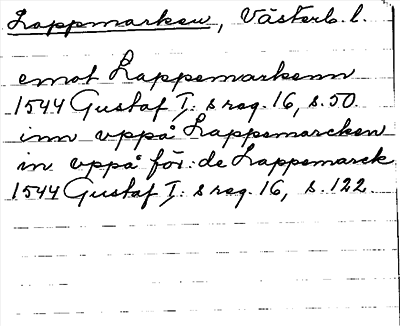 Lappmarken, Västerb. l.
emot Lappemarkenn
1544 Gustaf I: s reg. 16, s. 50.
inn uppå Lappemarcken
in uppå för: de Lappemarck
1544 Gustaf I: s reg. 16, s. 122.